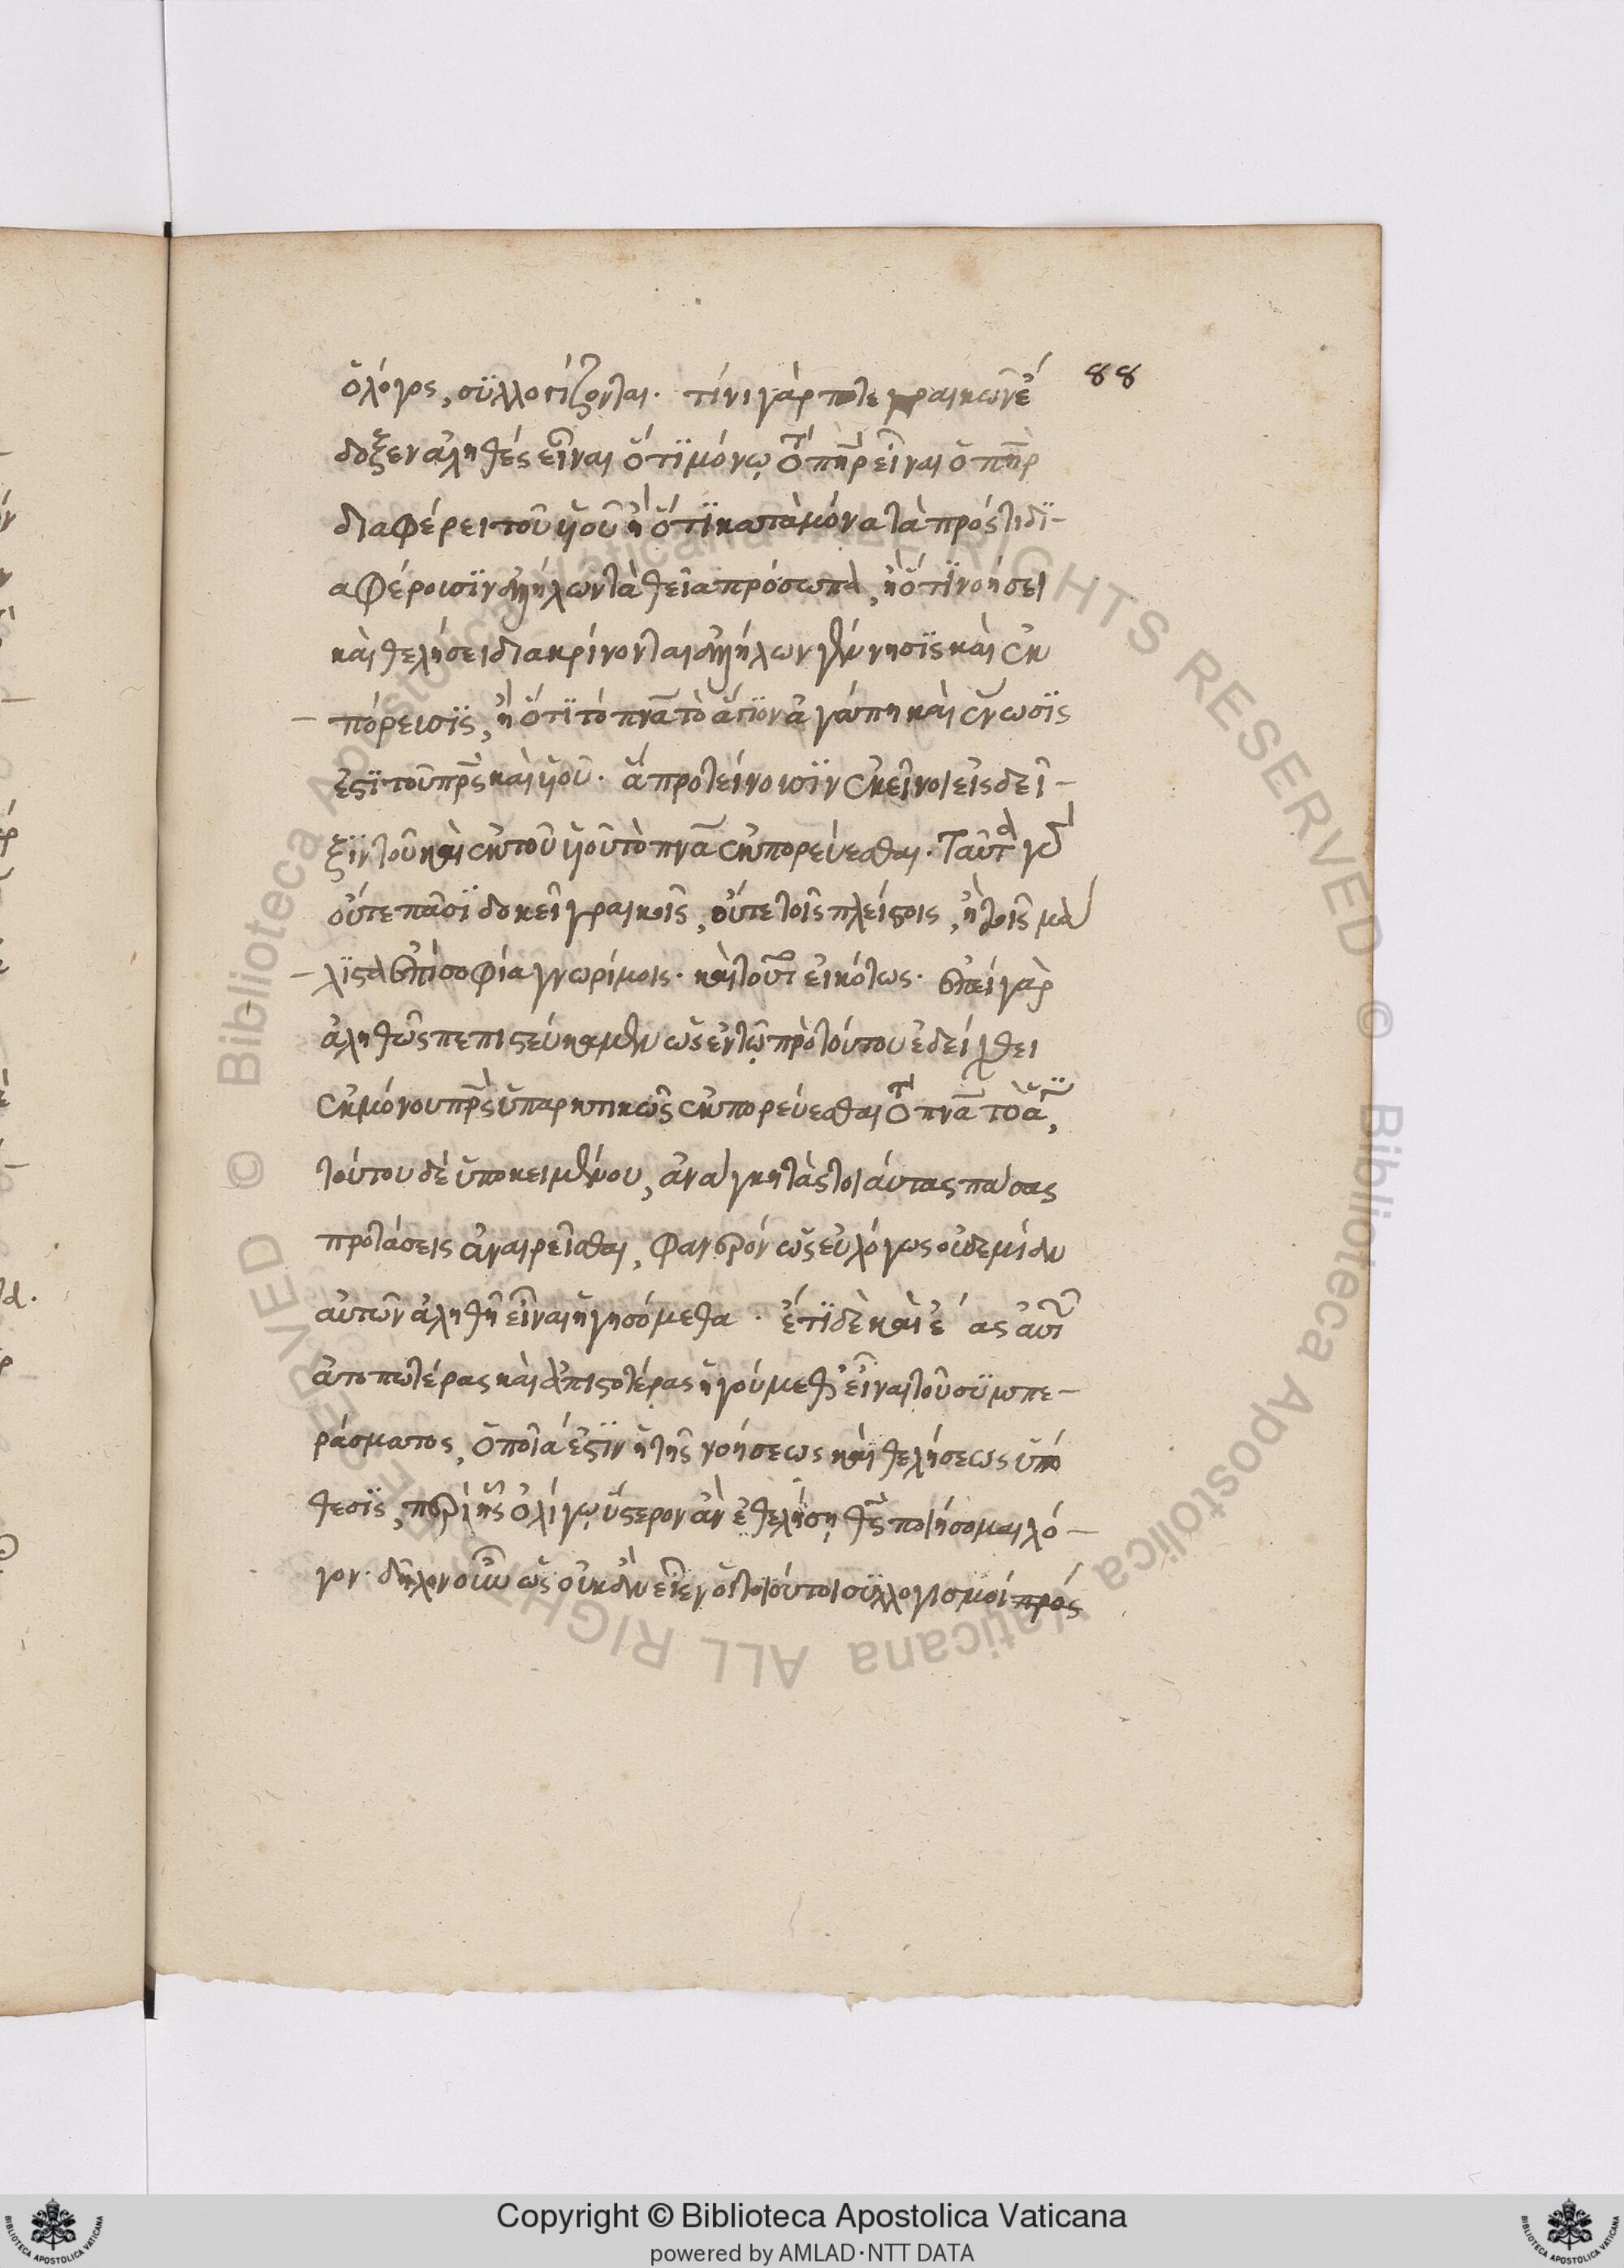 ὁ λόγος, συλλογίζονται. τίνι γάρ ποτε γραικῶν ἔ 88
δοξεν ἀληθές εἶναι ὅτι μόνω τῶ π̅η̅ρ εἶναι ὁ π̅η̅ρ
διαφέρει τοῦ υἱοῦ ἢ ὅτι κατὰ μόνα τὰ πρός τι δι-
αφέρουσιν ἀλλήλων τὰ θεῖα πρόσωπα, ἢ ὅτι νοήσει
καὶ θελήσει διακρίνονται ἀλλήλων γέννησις καὶ ἐκ
πόρευσις, ἢ ὅτι τὸ π̅ν̅α̅ τὸ ἅγιον ἀγάπη καὶ ἕνωσις
ἐστὶ τοῦ π̅ρ̅ς καὶ υἱοῦ. ἃ προτείνουσιν ἐκεῖνοι εἰς δεῖ-
ξιν τοῦ καὶ ἐκ τοῦ υἱοῦ τὸ π̅ν̅α̅ ἐκπορεύεσθαι. Ταῦτα γὰρ
οὔτε πᾶσι δοκεῖ γραικοῖς, οὔτε τοῖς πλείστοις, ἢ τοῖς μά
-λιστα ἐπὶ σοφία γνωρίμοις. καὶ τοῦτο εἰκότως. ἐπεὶ γὰρ
ἀληθῶς πεπιστεύκαμεν ὡς ἐν τῶ πρὸ τούτου ἐδείχθει
ἐκ μόνου π̅ρ̅ς ὑπαρκτικῶς ἐκπορεύεσθαι τὸ π̅ν̅α̅ τὸ ἅγιον,
τούτου δὲ ὑποκειμένου, ἀνάγκη τὰς τοιάυτας πάσας
προτάσεις ἀναιρεῖσθαι, φανερόν ὡς εὐλόγως οὐδεμίαν
αὐτῶν ἀληθῆ εἶναι ἡγησόμεθα. ἔτι δὲ καὶ ἐ ας αὐτῶν
ἀτοπωτέρας καὶ ἀπιστοτέρας ἡγούμεθα εἶναι τοῦ συμπε-
ράσματος, ὁποῖα ἐστὶν ἡ τῆς νοήσεως καὶ θελήσεως ὑπό
θεσις, περὶ ἧς ὀλίγω ὕστερον ἂν ἐθελήση θ̅ς ποιήσομαι λό-
γον. δῆλον οὖν ὡς οὐκ ἂν εἶεν οἱ τοιοῦτοι συλλογισμοί πρός
Copyright © Biblioteca Apostolica Vaticana
powered by AMLAD·NTT DATA